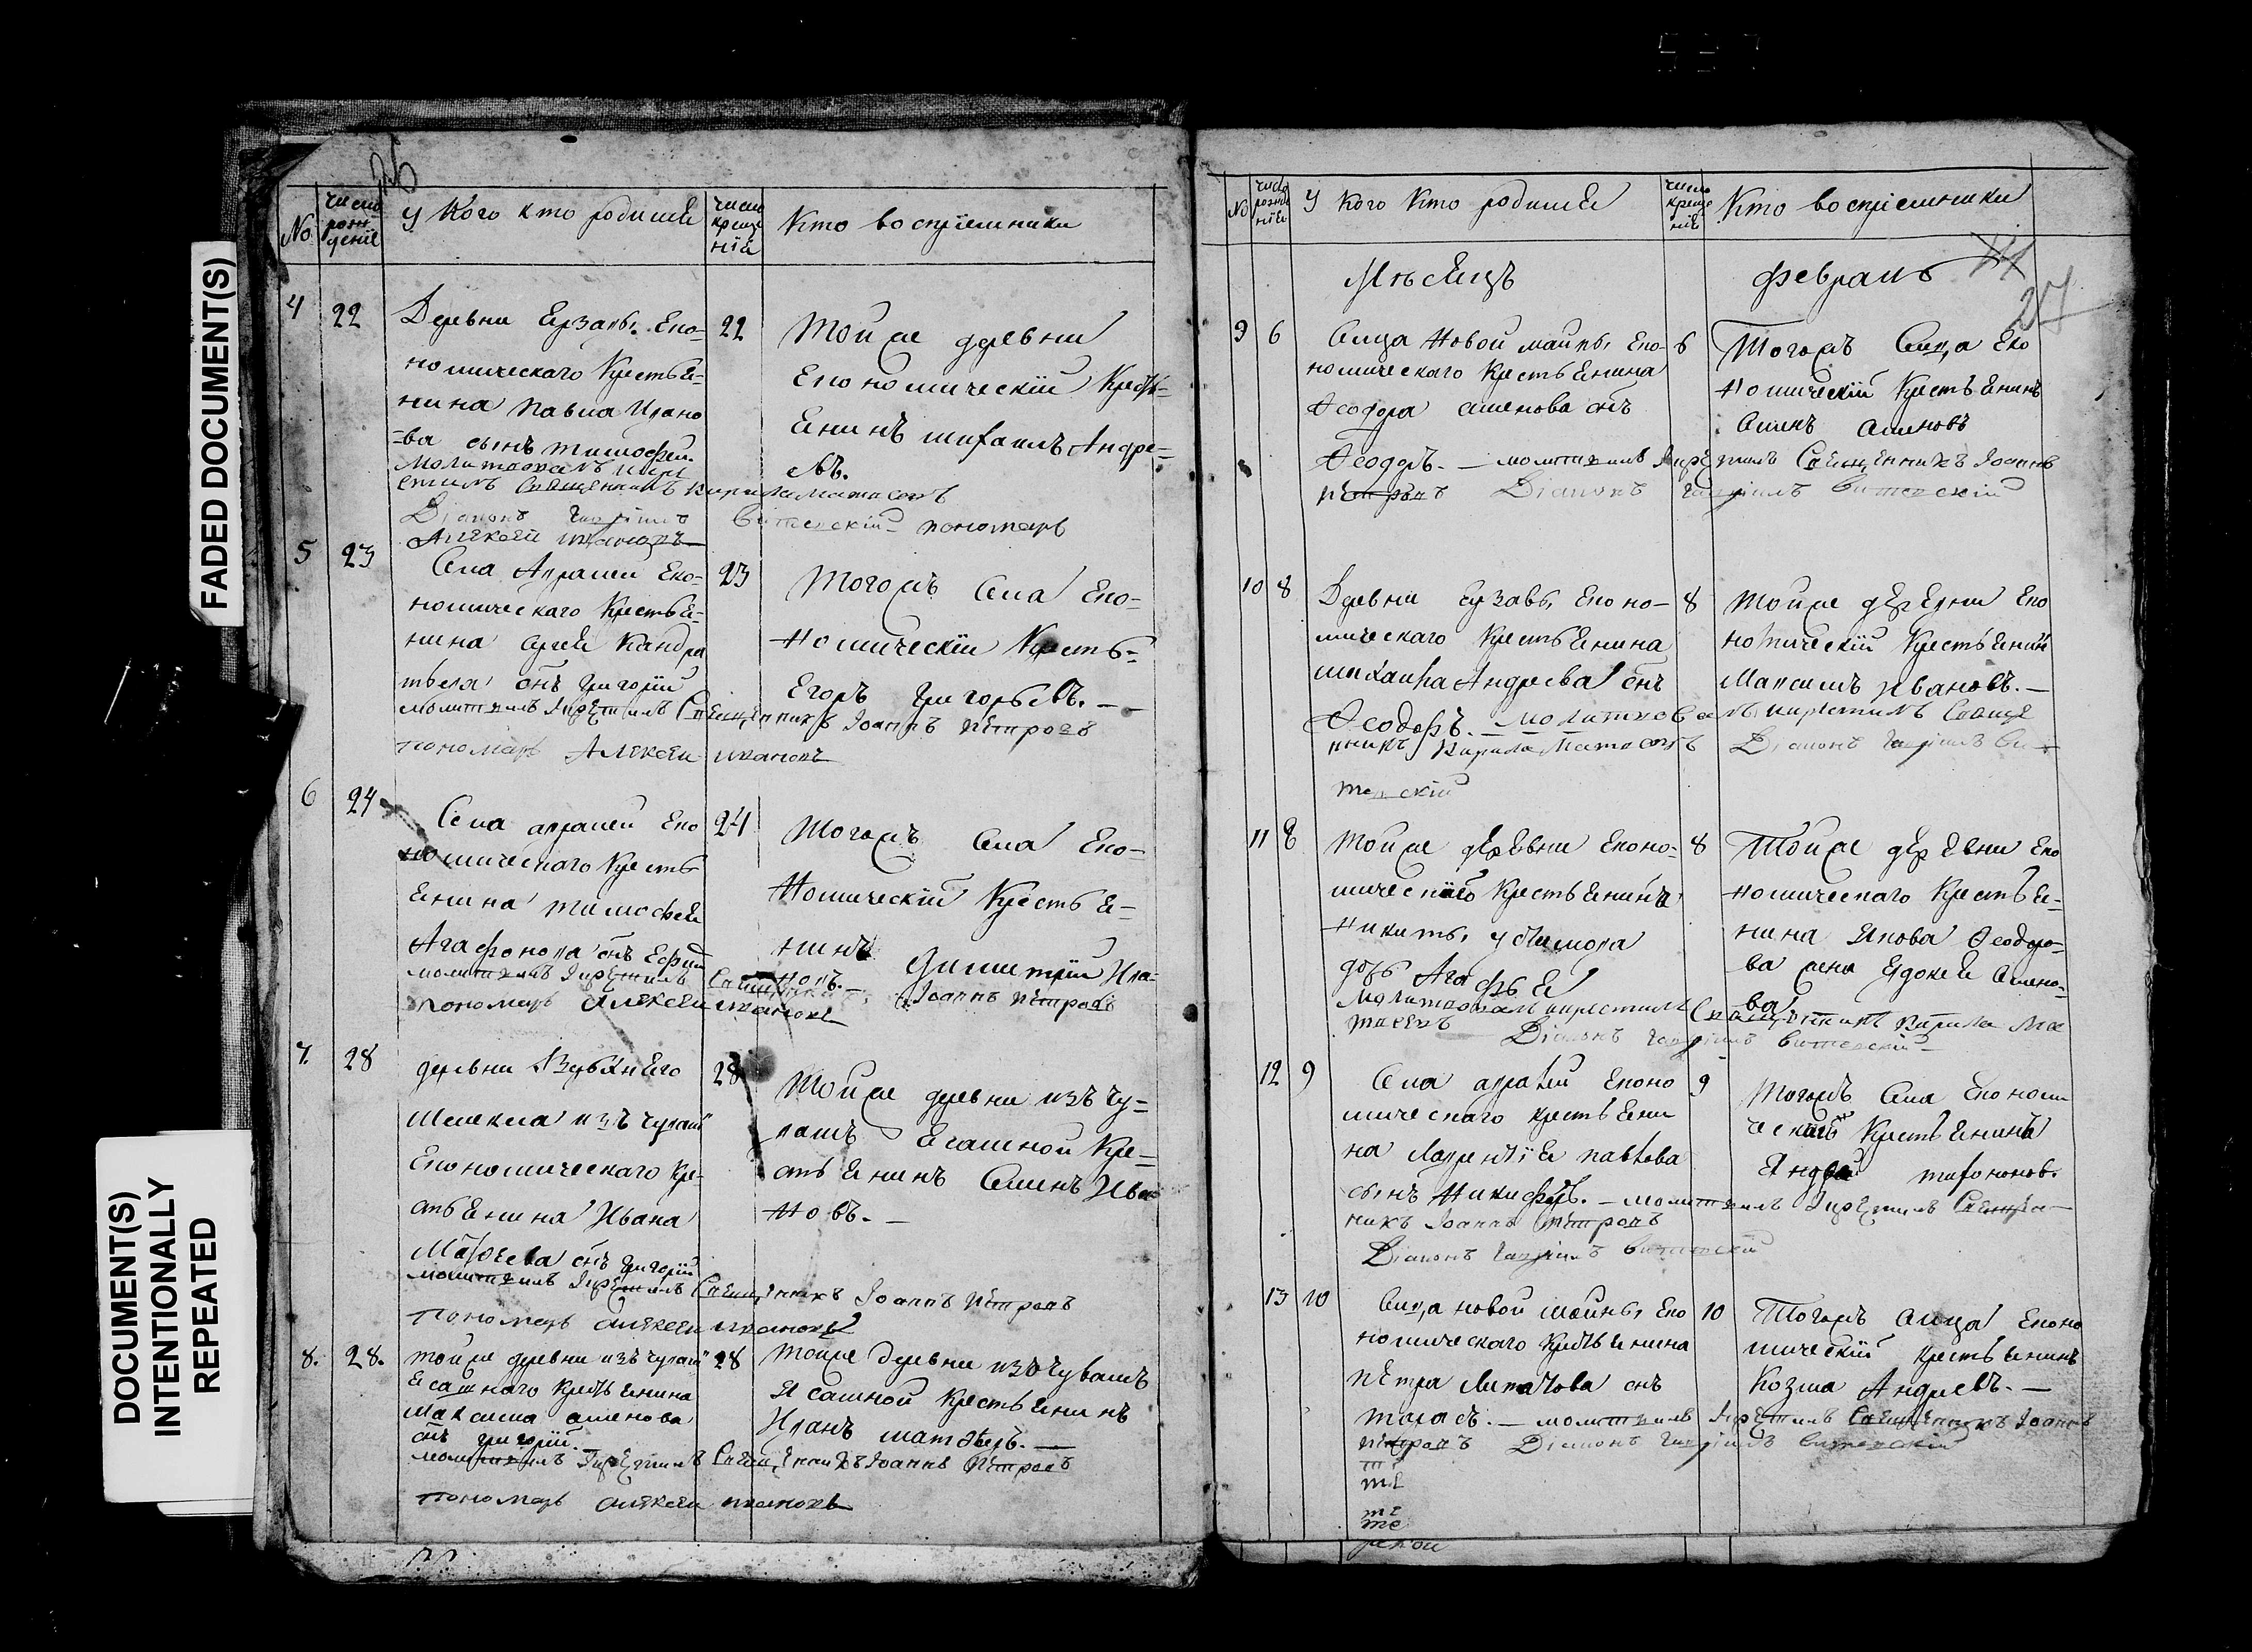 FADED DOCUMENT(S)
DOCUMENT(S)
INTENTIONALLY
REPEATED
26
№
число рождение
у кого кто родился
число крещений
Кто восприемники
4
22
Деревни Ерзавъ. Эко-
номическаго Крестья-
нина Павла Ивано
-ва сынъ тимофей.
молитвовалъ икре
стилъ Священникъ кирила матвеевъ
Дiаконъ Гаврiилъ Витевскiй пономарь
Алексеи ивановъ
22
Той же деревни
Економическiй Крестья-
Енинъ михаилъ Андре-
евъ.
5
23
Села Арамеи Еко-
номическаго Крестье-
нина Сергея Кандра
тьева снъ григорiй
молитвилъ Iкрестилъ Священникъ Iоаннъ Петровъ
пономарь Алексеи ивановъ
23
Тогожъ Села Еко-
номическiй Кресть-
Егоръ григорьевъ. —
6
24
Села арамеи Еко
номическаго Кресть
Енина тимофея
Агафонова снъ Ефим
молитвилъ Iкрестилъ Священникъ Iоаннъ Петровъ
пономарь Алексеи ивановъ
24
Тогожъ Села Еко-
номическiй Крестье-
нинъ Димитрiй Ива-
новъ. —
7.
28
деревни
изъ чуваш
Економическаго Кре-
стьЕнина Ивана
Матвеева снъ григорiй
молитвилъ Iкрестилъ Священникъ Iоаннъ Петровъ
пономарь Алексеи ивановъ
28
Той же деревни изъ чу-
вашъ Есашной Кре-
стьЕнинъ Семенъ Ива
новъ. —
8.
28.
той же деревни изъ чуваш
Есашнаго КрестьЕнина
Максима семенова
снъ григорiй.
молитвилъ Iкрестилъ Священникъ Iоаннъ Петровъ
пономарь Алексеи ивановъ
28
той же деревни изъ чувашъ
Ясашной КрестьЕнинъ
Иванъ матвеевъ. —
№
число рождение
У кого Кто родился
число крещение
Кто восприемники
Мѣсяцъ
февраль
27
9
6
Сельца Новой маины Еко-
номическаго КрестьЕнина
Ѳеодора семенова снъ
Ѳеодоръ. — молитвилъ Iкрестилъ Священникъ Iоаннъ
Петровъ Дiаконъ Гаврiилъ Витевскiй
6
Тогожъ Сельца Еко
номическiй КрестьЕнинъ
Семенъ Семеновъ
10
8
Деревни Ерзавы Еконо-
мическаго КрестьЕнина
михаила Андреева снъ
Ѳеодоръ. — молитвовалъ икрестилъ Свяще
нникъ Кирила Матвеевъ Дiаконъ Гаврiилъ Ви-
тевскiй
8
той же деревни Еко
номическiй КрестьЕнин
Максимъ Ивановъ. —
11
8
той же деревни Еконо-
мическаго КрестьЕнина
Никиты устимова
дочь Агафья
Молитвовалъ икрестилъ Священникъ Кирила Ма
твеевъ Дiаконъ Гаврiилъ Витевскiй
8
Той же деревни Еко
номическаго КрестьЕ-
нина Якова Ѳеодоро-
ва жена Евдокея Семено-
ва
12
9
Села арамеи Еконо
мическаго крестьЕни
на Лаврентiя павлова
сынъ Никифоръ. — молитвилъ Iкрестилъ Священ-
никъ Iоаннъ Петровъ
Дiаконъ Гаврiилъ Витевскiй
9
Тогожъ Села Економи
ческiй КрестьЕнинъ
Андрей тифоновъ.
13
10
Сельца новой маины Еко
номическаго КрестьЕнина
Петра Липатова снъ
тарасъ. — молитвилъ Iкрестилъ Священникъ Iоаннъ
Петровъ Дiаконъ Гаврiилъ Витевскiй
10
Тогожъ сельца Еконо
мическiй крестьЕнинъ
Козма Андреевъ. —